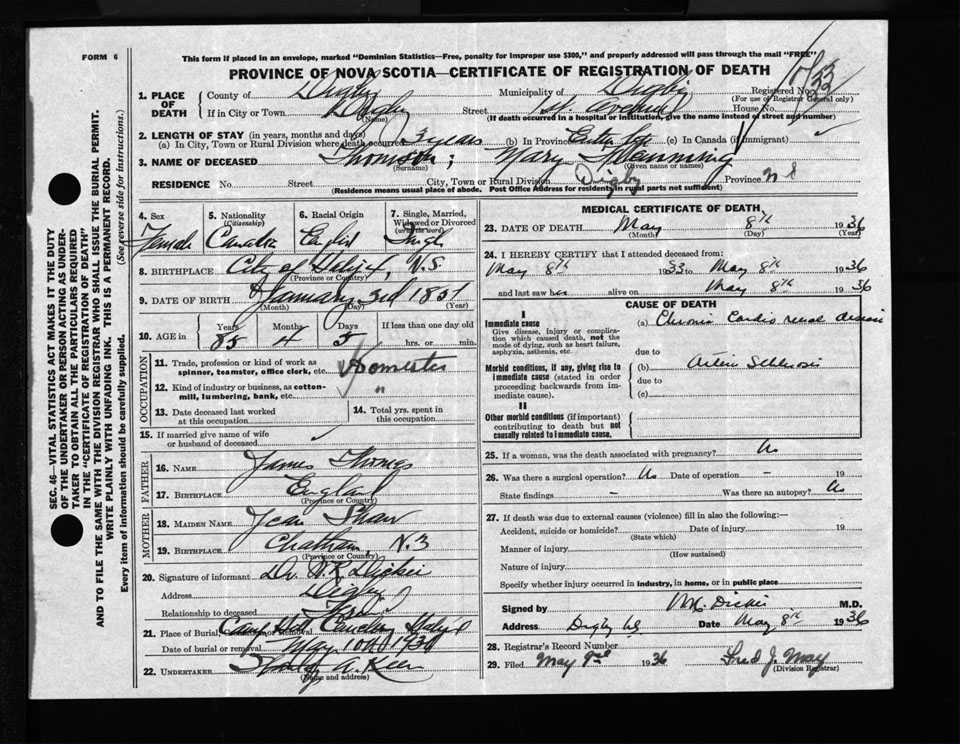 FORM 6
This form if placed in an envelope, marked "Dominion Statistics—Free, penalty for improper use $300," and properly addressed will pass through the mail "FREE"
PROVINCE OF NOVA SCOTIA—CERTIFICATE OF REGISTRATION OF DEATH
1. PLACE OF DEATH
County of Digby Municipality of Digby Registered No.
(For use of Registrar General only)
If in City or Town Digby Street 1st Avenue House No.
(Name) (If death occurred in a hospital or institution, give the name instead of street and number)
2. LENGTH OF STAY (in years, months and days)
(a) In City, Town or Rural Division where death occurred 3 years (b) In Province Entire life (c) In Canada (if immigrant)
3. NAME OF DECEASED Mary
(Surname) (Given name or names)
RESIDENCE No. Street City, Town or Rural Division Digby Province N S
(Residence means usual place of abode. Post Office Address for residents in rural parts not sufficient)
SEC. 46—VITAL STATISTICS ACT MAKES IT THE DUTY
OF THE UNDERTAKER OR PERSON ACTING AS UNDER-
TAKER TO OBTAIN ALL THE PARTICULARS REQUIRED
IN THE "CERTIFICATE OF REGISTRATION OF DEATH"
AND TO FILE THE SAME WITH THE DIVISION REGISTRAR WHO SHALL ISSUE THE BURIAL PERMIT.
WRITE PLAINLY WITH UNFADING INK. THIS IS A PERMANENT RECORD.
Every item of information should be carefully supplied. (See reverse side for instructions.)
4. Sex
Female
5. Nationality
(Citizenship)
Canada
6. Racial Origin
English
7. Single, Married, Widowed or Divorced
(write the word)
Single
8. BIRTHPLACE City of Halifax, N.S.
(Province or Country)
9. DATE OF BIRTH January 3rd 1851
(Month) (Day) (Year)
10. AGE in
Years Months Days If less than one day old
85 4 5 hrs. or min.
OCCUPATION
11. Trade, profession or kind of work as spinner, teamster, office clerk, etc.
12. Kind of industry or business, as cotton-mill, lumbering, bank, etc. "
13. Date deceased last worked at this occupation
14. Total yrs. spent in this occupation
15. If married give name of wife or husband of deceased
FATHER
16. NAME James
17. BIRTHPLACE England
(Province or Country)
MOTHER
18. MAIDEN NAME Jean Shaw
19. BIRTHPLACE Chatham, N.B
(Province or Country)
20. Signature of informant Dr. Dickie
Address Digby
Relationship to deceased
21. Place of Burial, Cremation or Removal Camp Hill Cemetery Halifax
Date of burial or removal May 10th 1936
22. UNDERTAKER
(Name and address)
MEDICAL CERTIFICATE OF DEATH
23. DATE OF DEATH May 8th 1936
(Month) (Day) (Year)
24. I HEREBY CERTIFY that I attended deceased from:
May 8th 1933 to May 8th 1936
and last saw her alive on May 8th 1936
CAUSE OF DEATH
I
Immediate cause
Give disease, injury or complication which caused death, not the mode of dying, such as heart failure, asphyxia, asthenia, etc.
(a) Chronic Cardio renal disease
due to
Morbid conditions, if any, giving rise to immediate cause (stated in order proceeding backwards from immediate cause).
(b) Arterio Sclerosis
due to
(c)
II
Other morbid conditions (if important) contributing to death but not causally related to immediate cause.
25. If a woman, was the death associated with pregnancy? No
26. Was there a surgical operation? No Date of operation – 19
State findings – Was there an autopsy? No
27. If death was due to external causes (violence) fill in also the following:—
Accident, suicide or homicide? Date of injury 19
(State which)
Manner of injury
(How sustained)
Nature of injury
Specify whether injury occurred in industry, in home, or in public place
Signed by Dickie M.D.
Address Digby NS Date May 8th 1936
28. Registrar's Record Number
29. Filed May 9th 1936 Fred J. May
(Division Registrar)